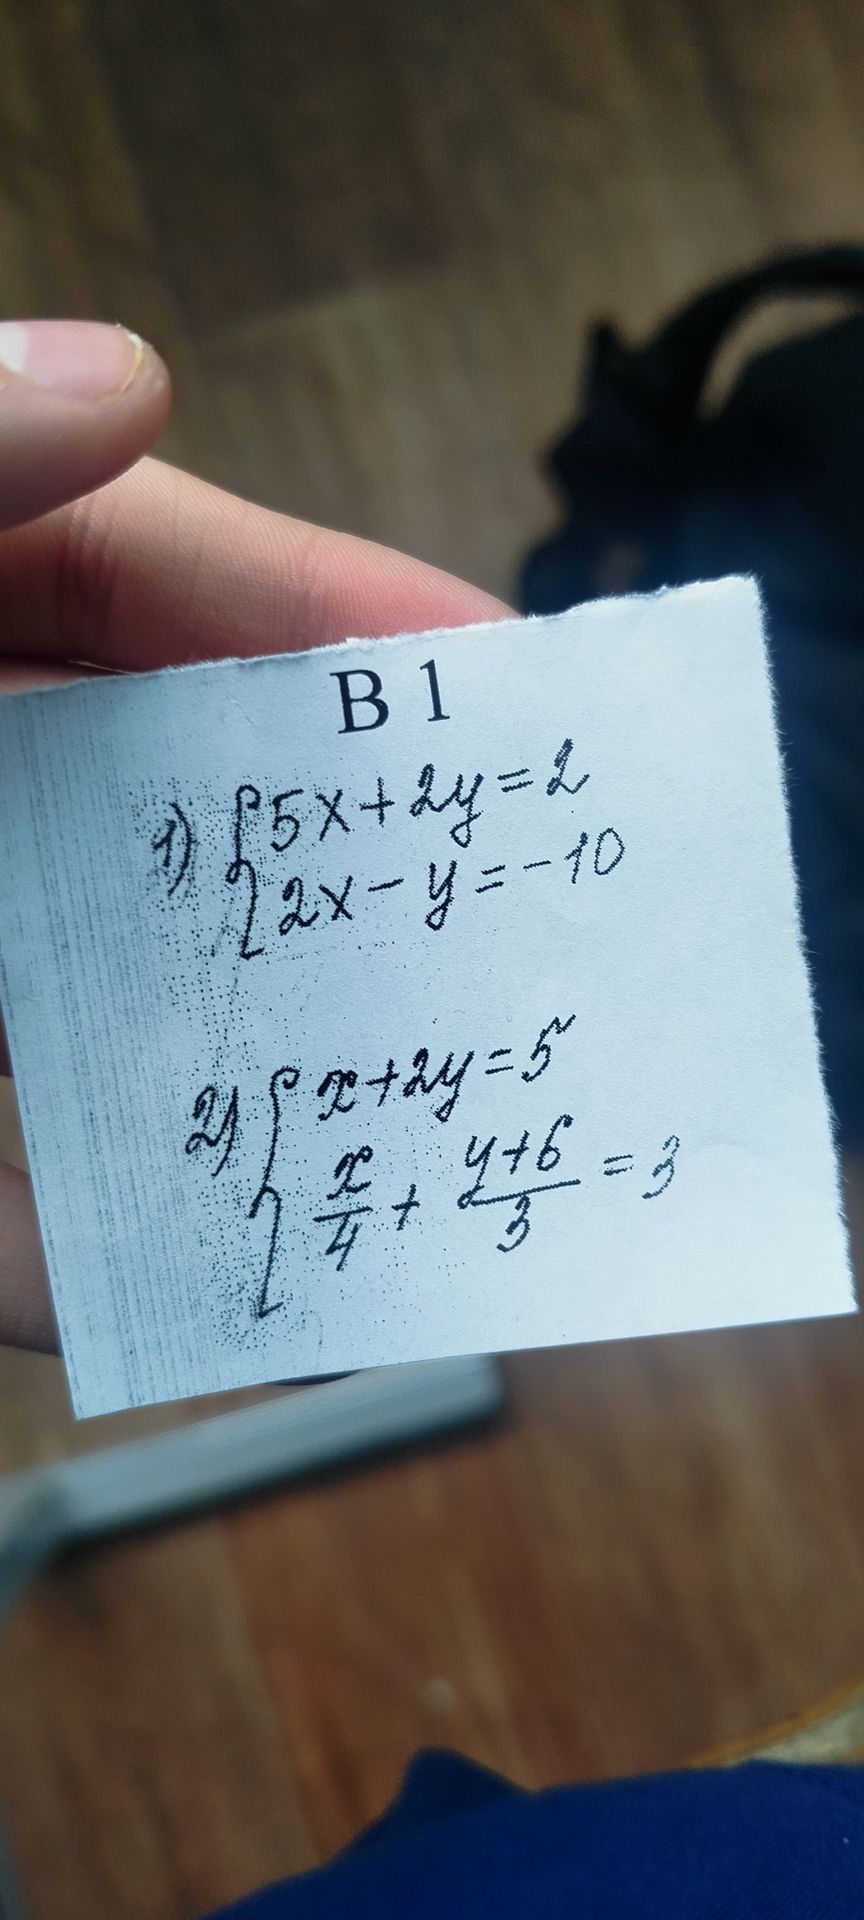 В 1
1) { 5x + 2y = 2
2x - y = -10
2) { x + 2y = 5
x/4 + (y+6)/3 = 3